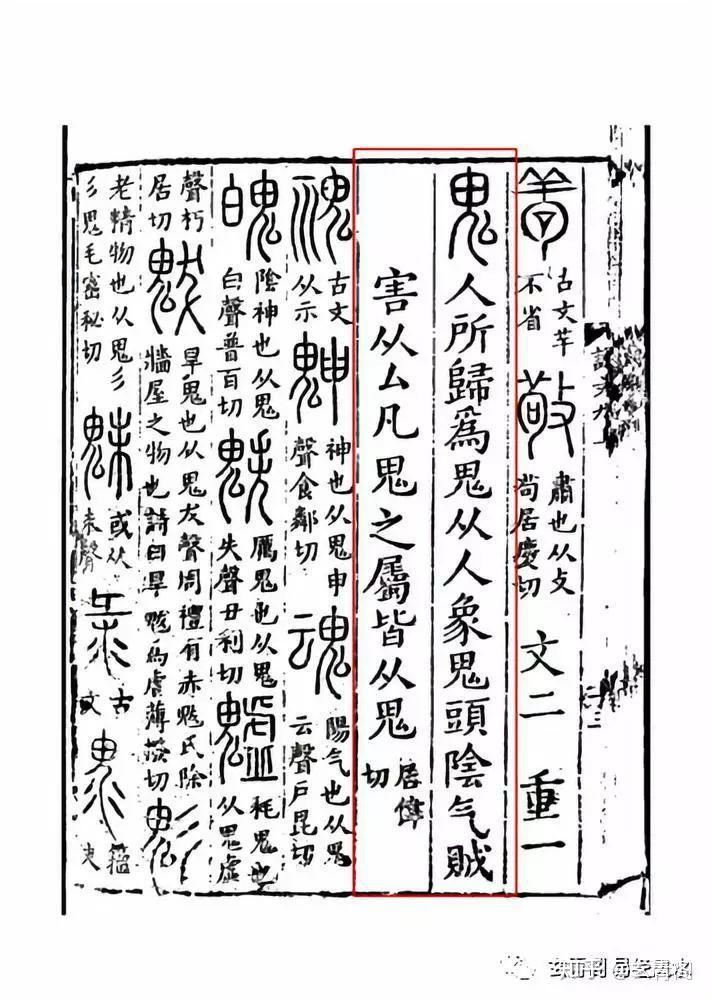 𦎧古文羊不省敬肅也从攴茍居慶切 文二 重一
鬼人所歸爲鬼从人象鬼頭陰气賊
害从厶凡鬼之屬皆从鬼居偉切
䰡古文从示䰠神也从鬼申聲食鄰切魂陽气也从鬼云聲戶昆切
魄陰神也从鬼白聲普百切魅厲鬼也从鬼失聲丑利切魖耗鬼也从鬼虛
聲朽居切魃旱鬼也从鬼犮聲周禮有赤魃氏除牆屋之物也詩曰旱魃爲虐薄撥切鬽
老精物也从鬼彡彡鬼毛密祕切魅或从未聲古文籒文
説文九上